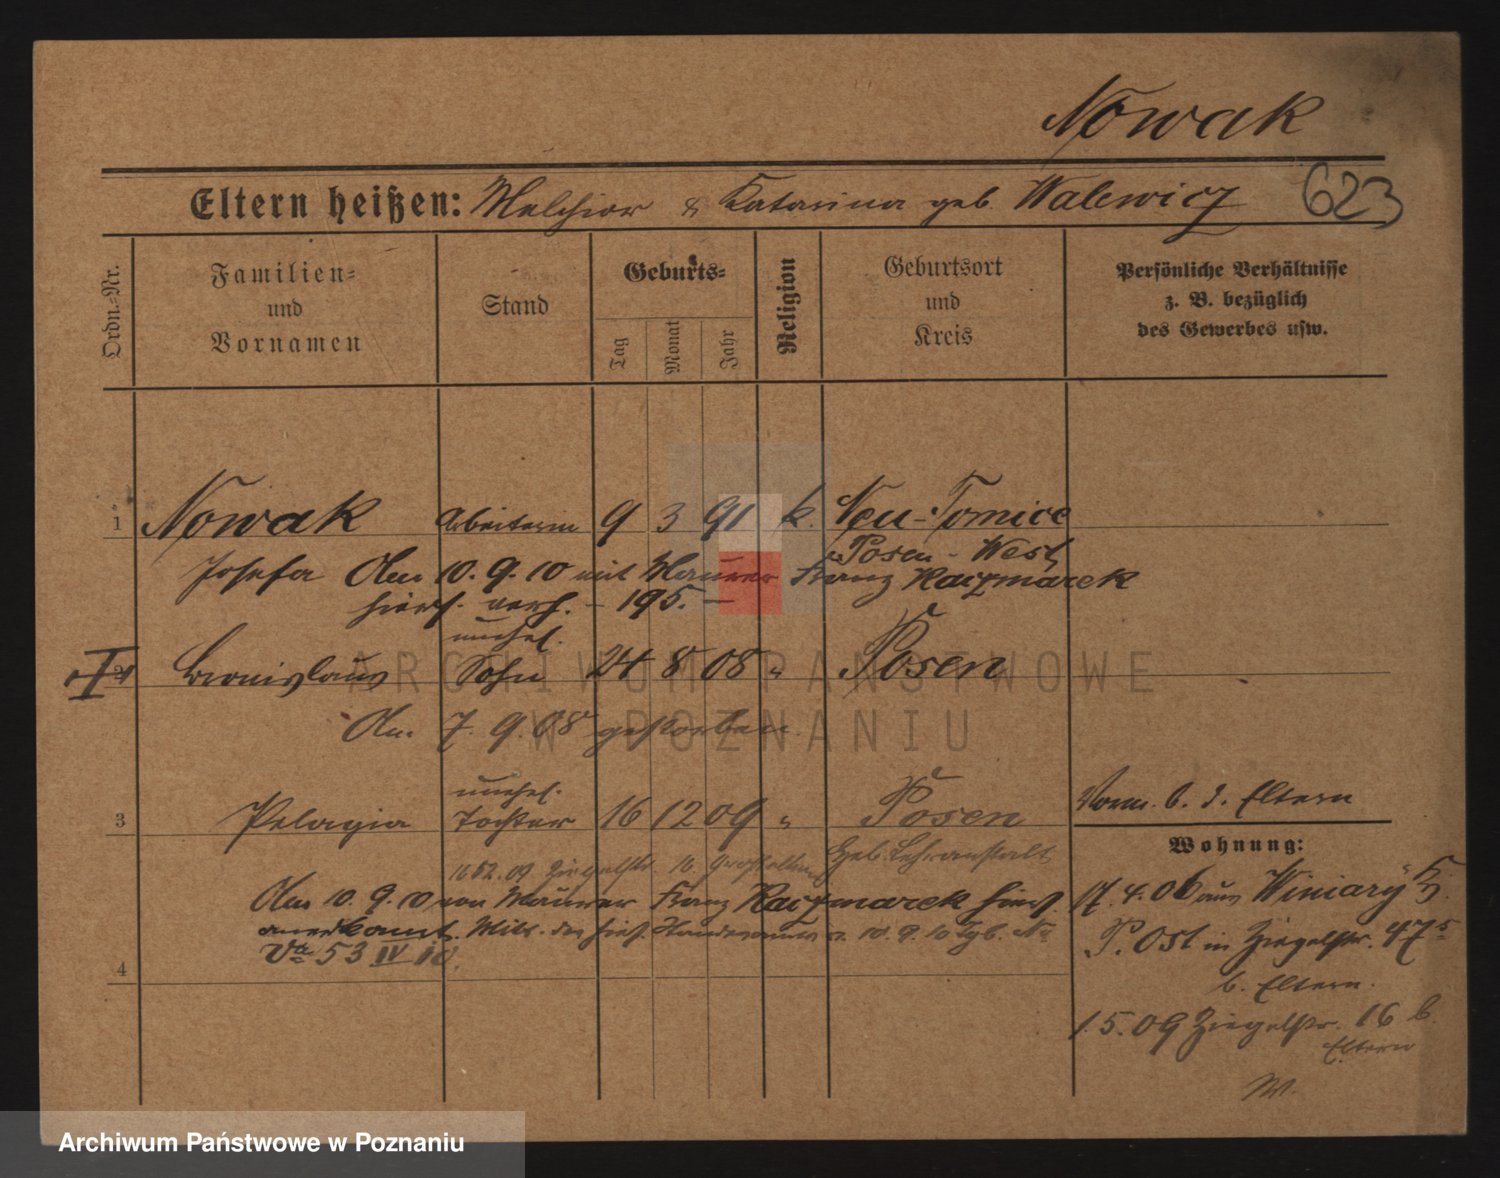 Nowak
Eltern heißen: Melchior & Katarina geb. Walewicz 623
Ordn.-Nr.
Familien-
und
Vornamen
Stand
Geburts-
Tag
Monat
Jahr
Religion
Geburtsort
und
Kreis
Persönliche Verhältnisse
z. B. bezüglich
des Gewerbes usw.
1 Nowak Arbeiterin 9 3 91 k. Neu-Tomice
Posen-West
Josefa Am 10. 9. 10 mit Maurer Franz Kaczmarek
hiers. verh. - 195. -
unehel.
2 Bronislaus Sohn 24 8 08 " Posen
Am 7. 9. 08 gestorben.
unehel.
3 Pelagia Tochter 16 12 09 " Posen
Geb. Lehranstalt
Ziegelstr. 16
Am 10. 9. 10 von Maurer Franz Kaczmarek hiers.
anerkannt. Mitt. des hies. Standesamts v. 10. 9. 10 Tgb. No
53 IV 10.
4
Vorm. b. d. Eltern
Wohnung:
17. 4. 06 aus Winiary Kr.
P. Ost in Ziegelstr. 47
b. Eltern.
1. 5. 09 Ziegelstr. 16 b.
Eltern
W.
ARCHIWUM PAŃSTWOWE
W POZNANIU
Archiwum Państwowe w Poznaniu